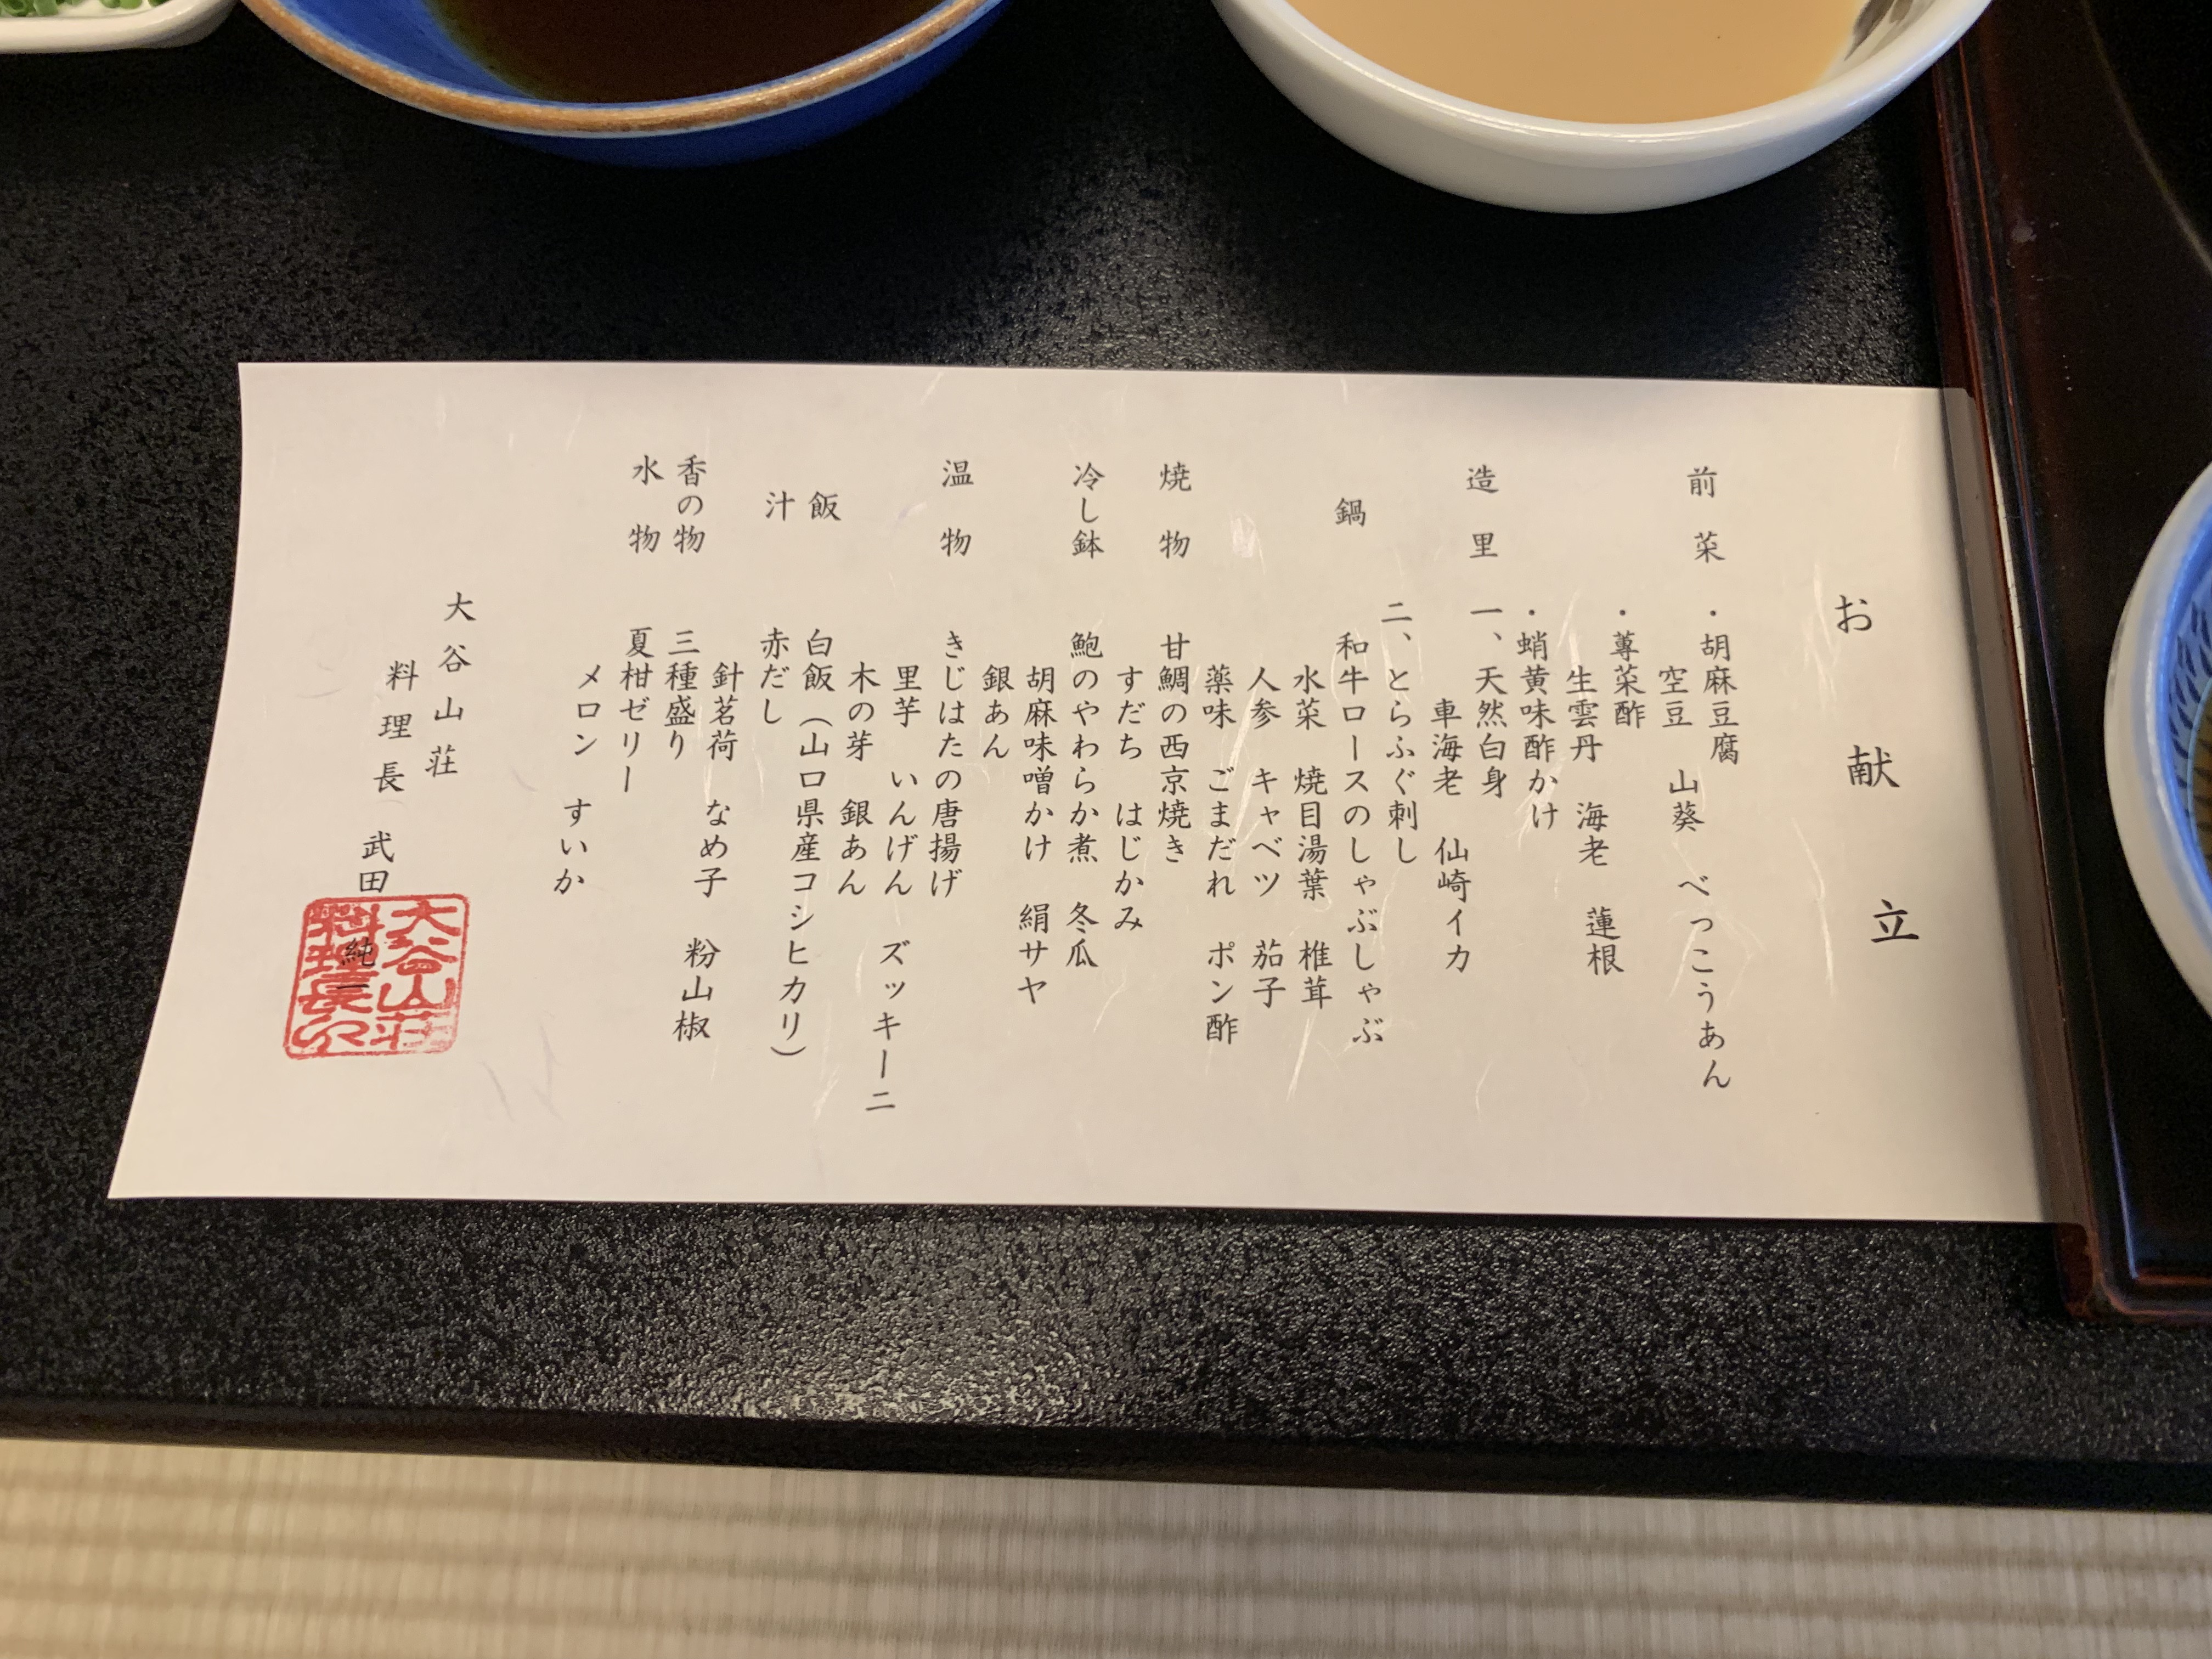 お献立
前菜
・胡麻豆腐
空豆 山葵 べっこうあん
・蓴菜酢
生雲丹 海老 蓮根
・蛸黄味酢かけ
造里
一、天然白身
車海老 仙崎イカ
二、とらふぐ刺し
鍋
和牛ロースのしゃぶしゃぶ
水菜 焼目湯葉 椎茸
人参 キャベツ 茄子
薬味 ごまだれ ポン酢
焼物
甘鯛の西京焼き
すだち はじかみ
冷し鉢
鮑のやわらか煮 冬瓜
胡麻味噌かけ 絹サヤ
銀あん
温物
きじはたの唐揚げ
里芋 いんげん ズッキーニ
木の芽 銀あん
飯
白飯(山口県産コシヒカリ)
汁
赤だし
針茗荷 なめ子 粉山椒
香の物
三種盛り
水物
夏柑ゼリー
メロン すいか
大谷山荘
料理長 武田 純一
大谷山荘
料理長印